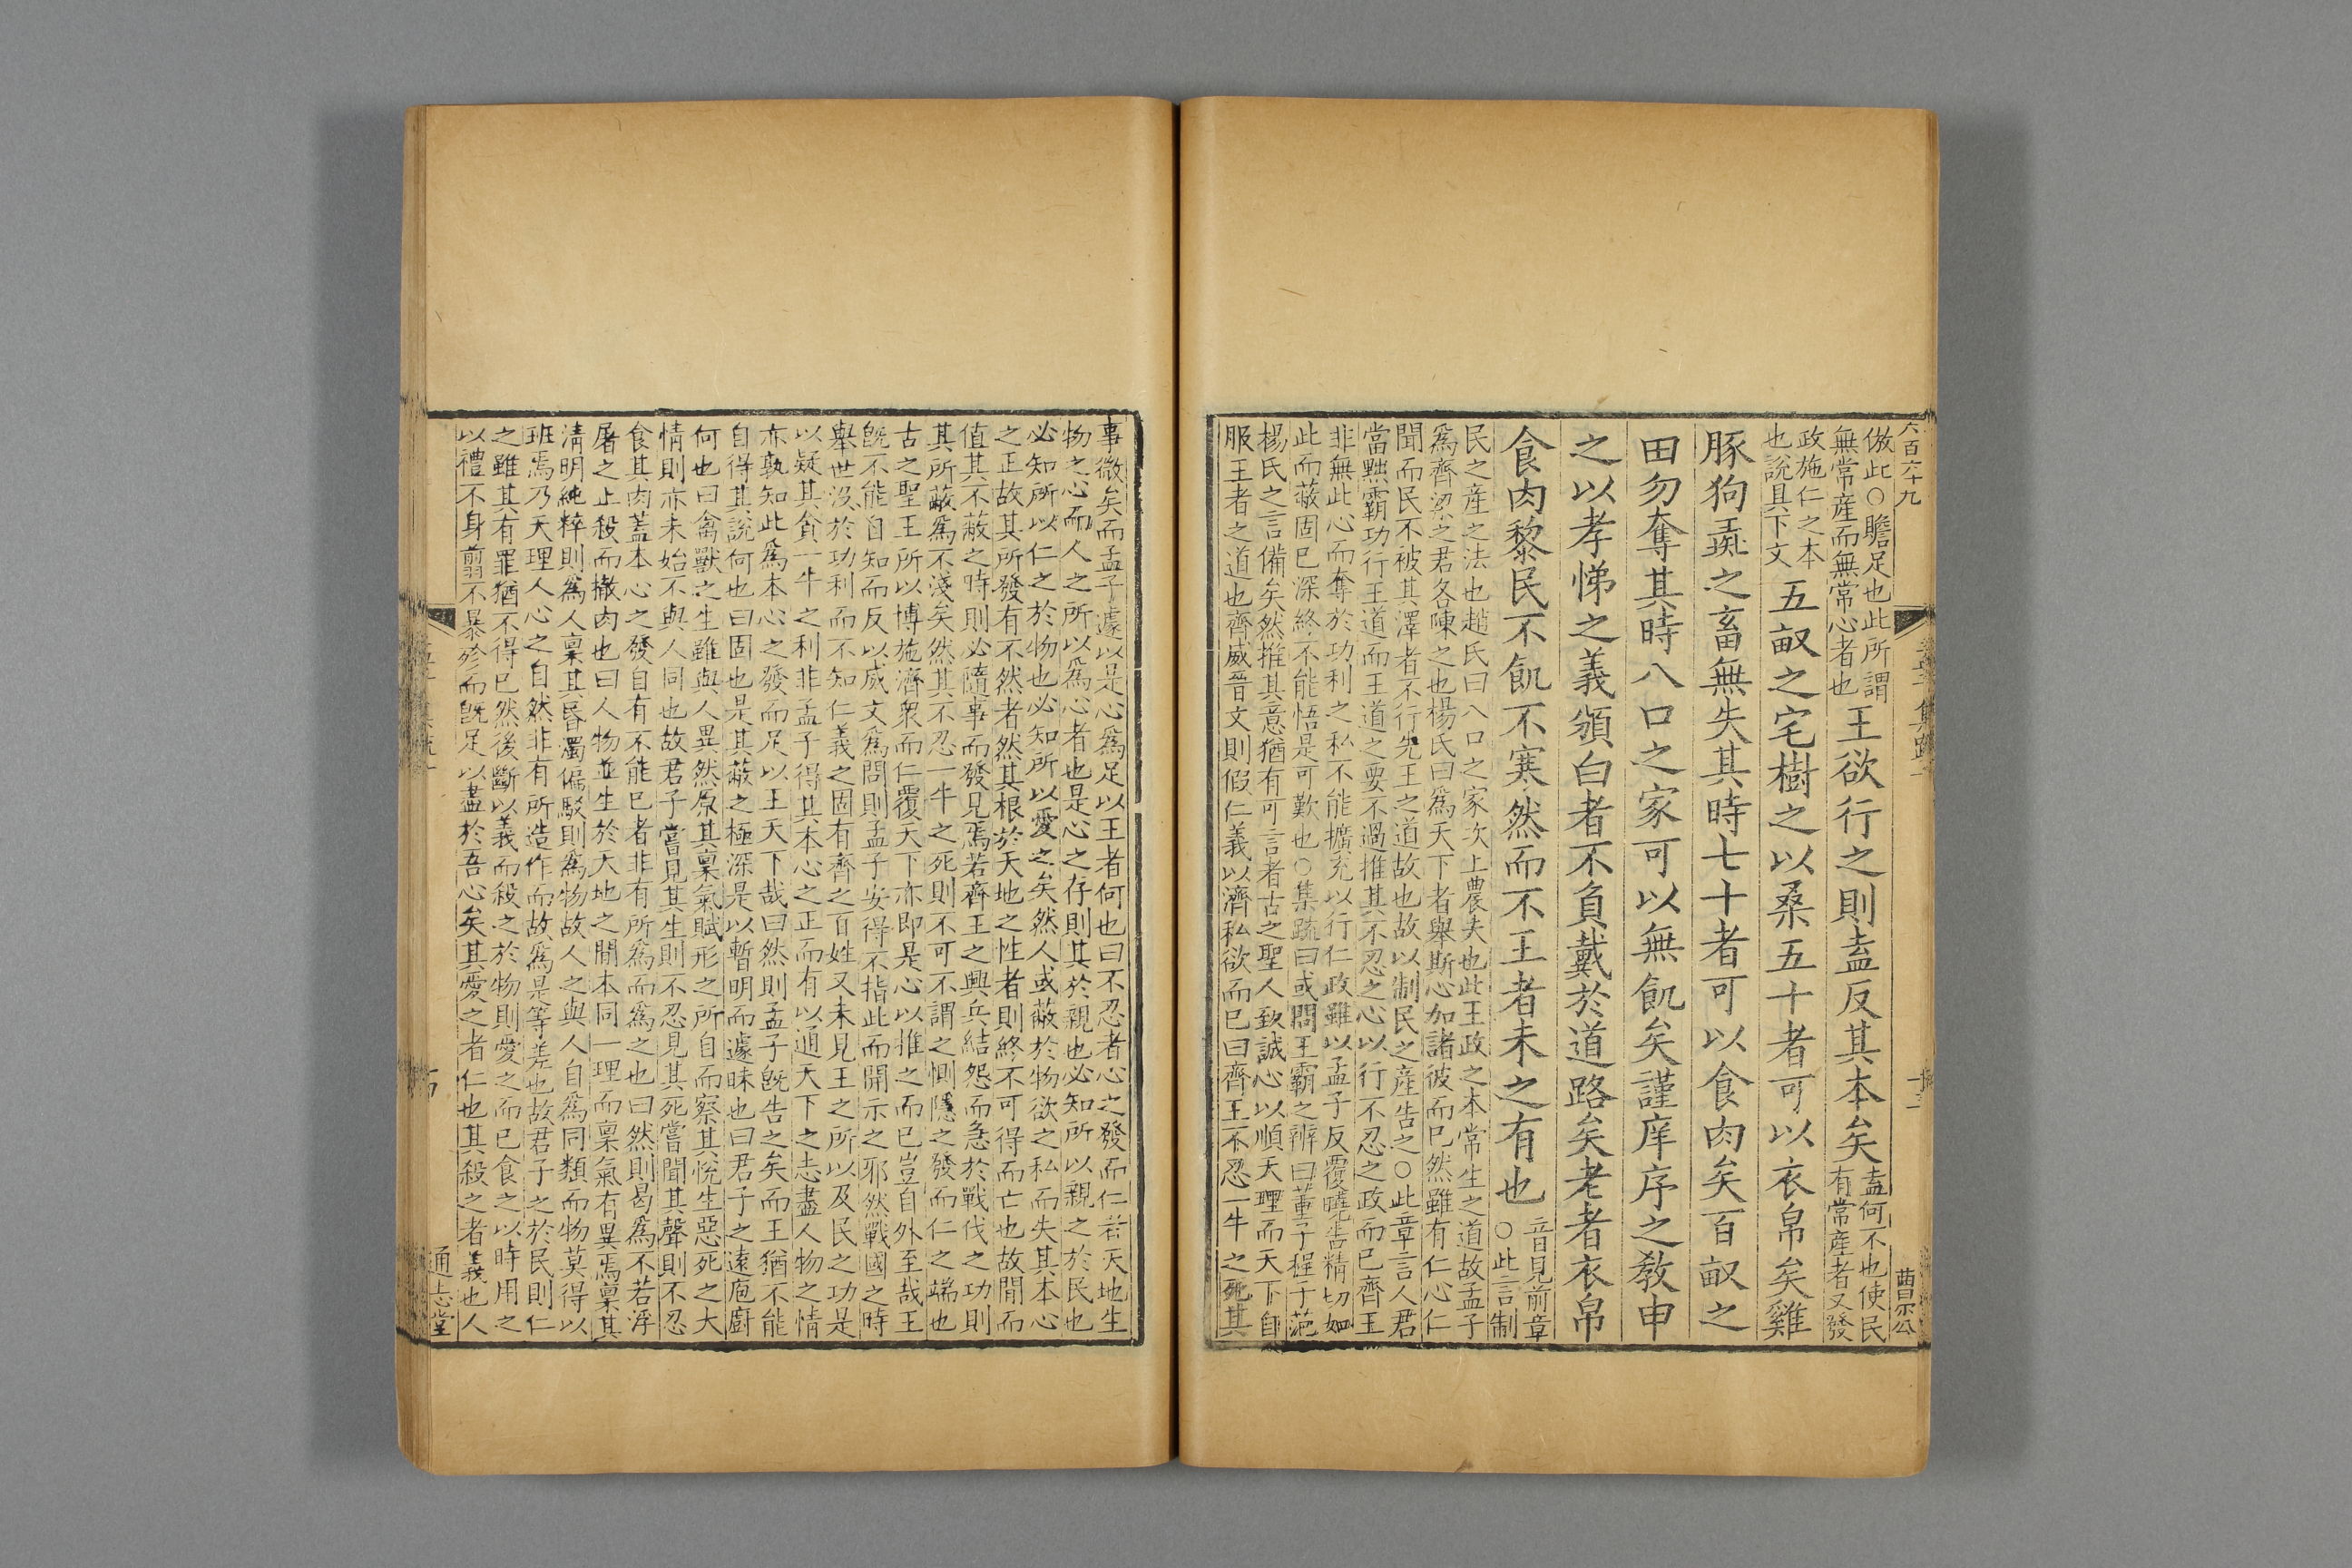 六百六十九
倣此○贍足也此所謂
無常產而無常心者也
王欲行之則盍反其本矣
盍何不也使民
有常產者又發
政施仁之本
也說具下文
五畝之宅樹之以桑五十者可以衣帛矣雞
豚狗彘之畜無失其時七十者可以食肉矣百畝之
田勿奪其時八口之家可以無飢矣謹庠序之教申
之以孝悌之義頒白者不負戴於道路矣老者衣帛
食肉黎民不飢不寒然而不王者未之有也
音見前章
○此言制
民之產之法也趙氏曰八口之家次上農夫也此王政之本常生之道故孟子
爲齊梁之君各陳之也楊氏曰爲天下者舉斯心加諸彼而已然雖有仁心仁
聞而民不被其澤者不行先王之道故也故以制民之產告之○此章言人君
當黜霸功行王道而王道之要不過推其不忍之心以行不忍之政而已齊王
非無此心而奪於功利之私不能擴充以行仁政雖以孟子反覆曉告精切如
此而蔽固已深終不能悟是可歎也○集疏曰或問王霸之辨曰董子程子范
楊氏之言備矣然推其意猶有可言者古之聖人致誠心以順天理而天下自
服王者之道也齊威晉文則假仁義以濟私欲而已曰齊王不忍一牛之死其
事微矣而孟子遽以是心爲足以王者何也曰不忍者心之發而仁者天地生
物之心而人之所以爲心者也是心之存則其於親也必知所以親之於民也
必知所以仁之於物也必知所以愛之矣然人或蔽於物欲之私而失其本心
之正故其所發有不然者然其根於天地之性者則終不可得而亡也故間而
值其不蔽之時則必隨事而發見焉若齊王之興兵結怨而急於戰伐之功則
其所蔽爲不淺矣然其不忍一牛之死則不可不謂之惻隱之發而仁之端也
古之聖王所以博施濟衆而仁覆天下亦即是心以推之而已豈自外至哉王
旣不能自知而反以威文爲問則孟子安得不指此而開示之邪然戰國之時
舉世沒於功利而不知仁義之固有齊之百姓又未見王之所以及民之功是
以疑其貪一牛之利非孟子得其本心之正而有以通天下之志盡人物之情
亦孰知此爲本心之發而足以王天下哉曰然則孟子旣告之矣而王猶不能
自得其說何也曰固也是其蔽之極深是以暫明而遽昧也曰君子之遠庖廚
何也曰禽獸之生雖與人異然原其稟氣賦形之所自而察其悅生惡死之大
情則亦未始不與人同也故君子嘗見其生則不忍見其死嘗聞其聲則不忍
食其肉蓋本心之發自有不能已者非有所爲而爲之也曰然則曷爲不若浮
屠之止殺而撤肉也曰人物並生於天地之間本同一理而稟氣有異焉稟其
清明純粹則爲人稟其昏濁偏駁則爲物故人之與人自爲同類而物莫得以
班焉乃天理人心之自然非有所造作而故爲是等差也故君子之於民則仁
之雖其有罪猶不得已然後斷以義而殺之於物則愛之而已食之以時用之
以禮不身翦不暴殄而旣足以盡於吾心矣其愛之者仁也其殺之者義也人
通志堂